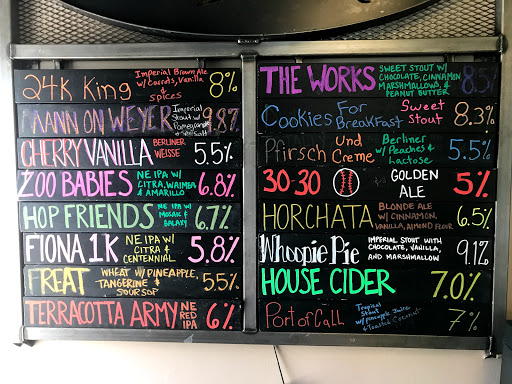 24K King Imperial Brown Ale
w/ Carrots, Vanilla
& spices 8%
MANN ON WEYER Imperial
Stout w/
Pomegranate 9.8%
CHERRY VANILLA BERLINER
WEISSE 5.5%
ZOO BABIES NE IPA W/
CITRA, WAIMEA
& AMARILLO 6.8%
HOP FRIENDS NE IPA W/
MOSAIC &
GALAXY 6.7%
FIONA 1K NE IPA W/
CITRA &
CENTENNIAL 5.8%
FREAT WHEAT W/ PINEAPPLE,
TANGERINE &
SOURSOP 5.5%
TERRACOTTA ARMY NE
RED
IPA 6%
THE WORKS SWEET STOUT W/
CHOCOLATE, CINNAMON
MARSHMALLOWS, &
PEANUT BUTTER 8.3%
Cookies For
Breakfast Sweet
Stout 8.3%
Pfirsch Und
Creme Berliner
w/ Peaches &
Lactose 5.5%
30-30 GOLDEN
ALE 5%
HORCHATA BLONDE ALE
W/ CINNAMON,
VANILLA, ALMOND FLOUR 6.5%
Whoopie Pie IMPERIAL STOUT WITH
CHOCOLATE, VANILLA,
AND MARSHMALLOW 9.1%
HOUSE CIDER 7.0%
Port of Call Tropical
Stout
w/ Pineapple Juice
& Toasted Coconut 7%